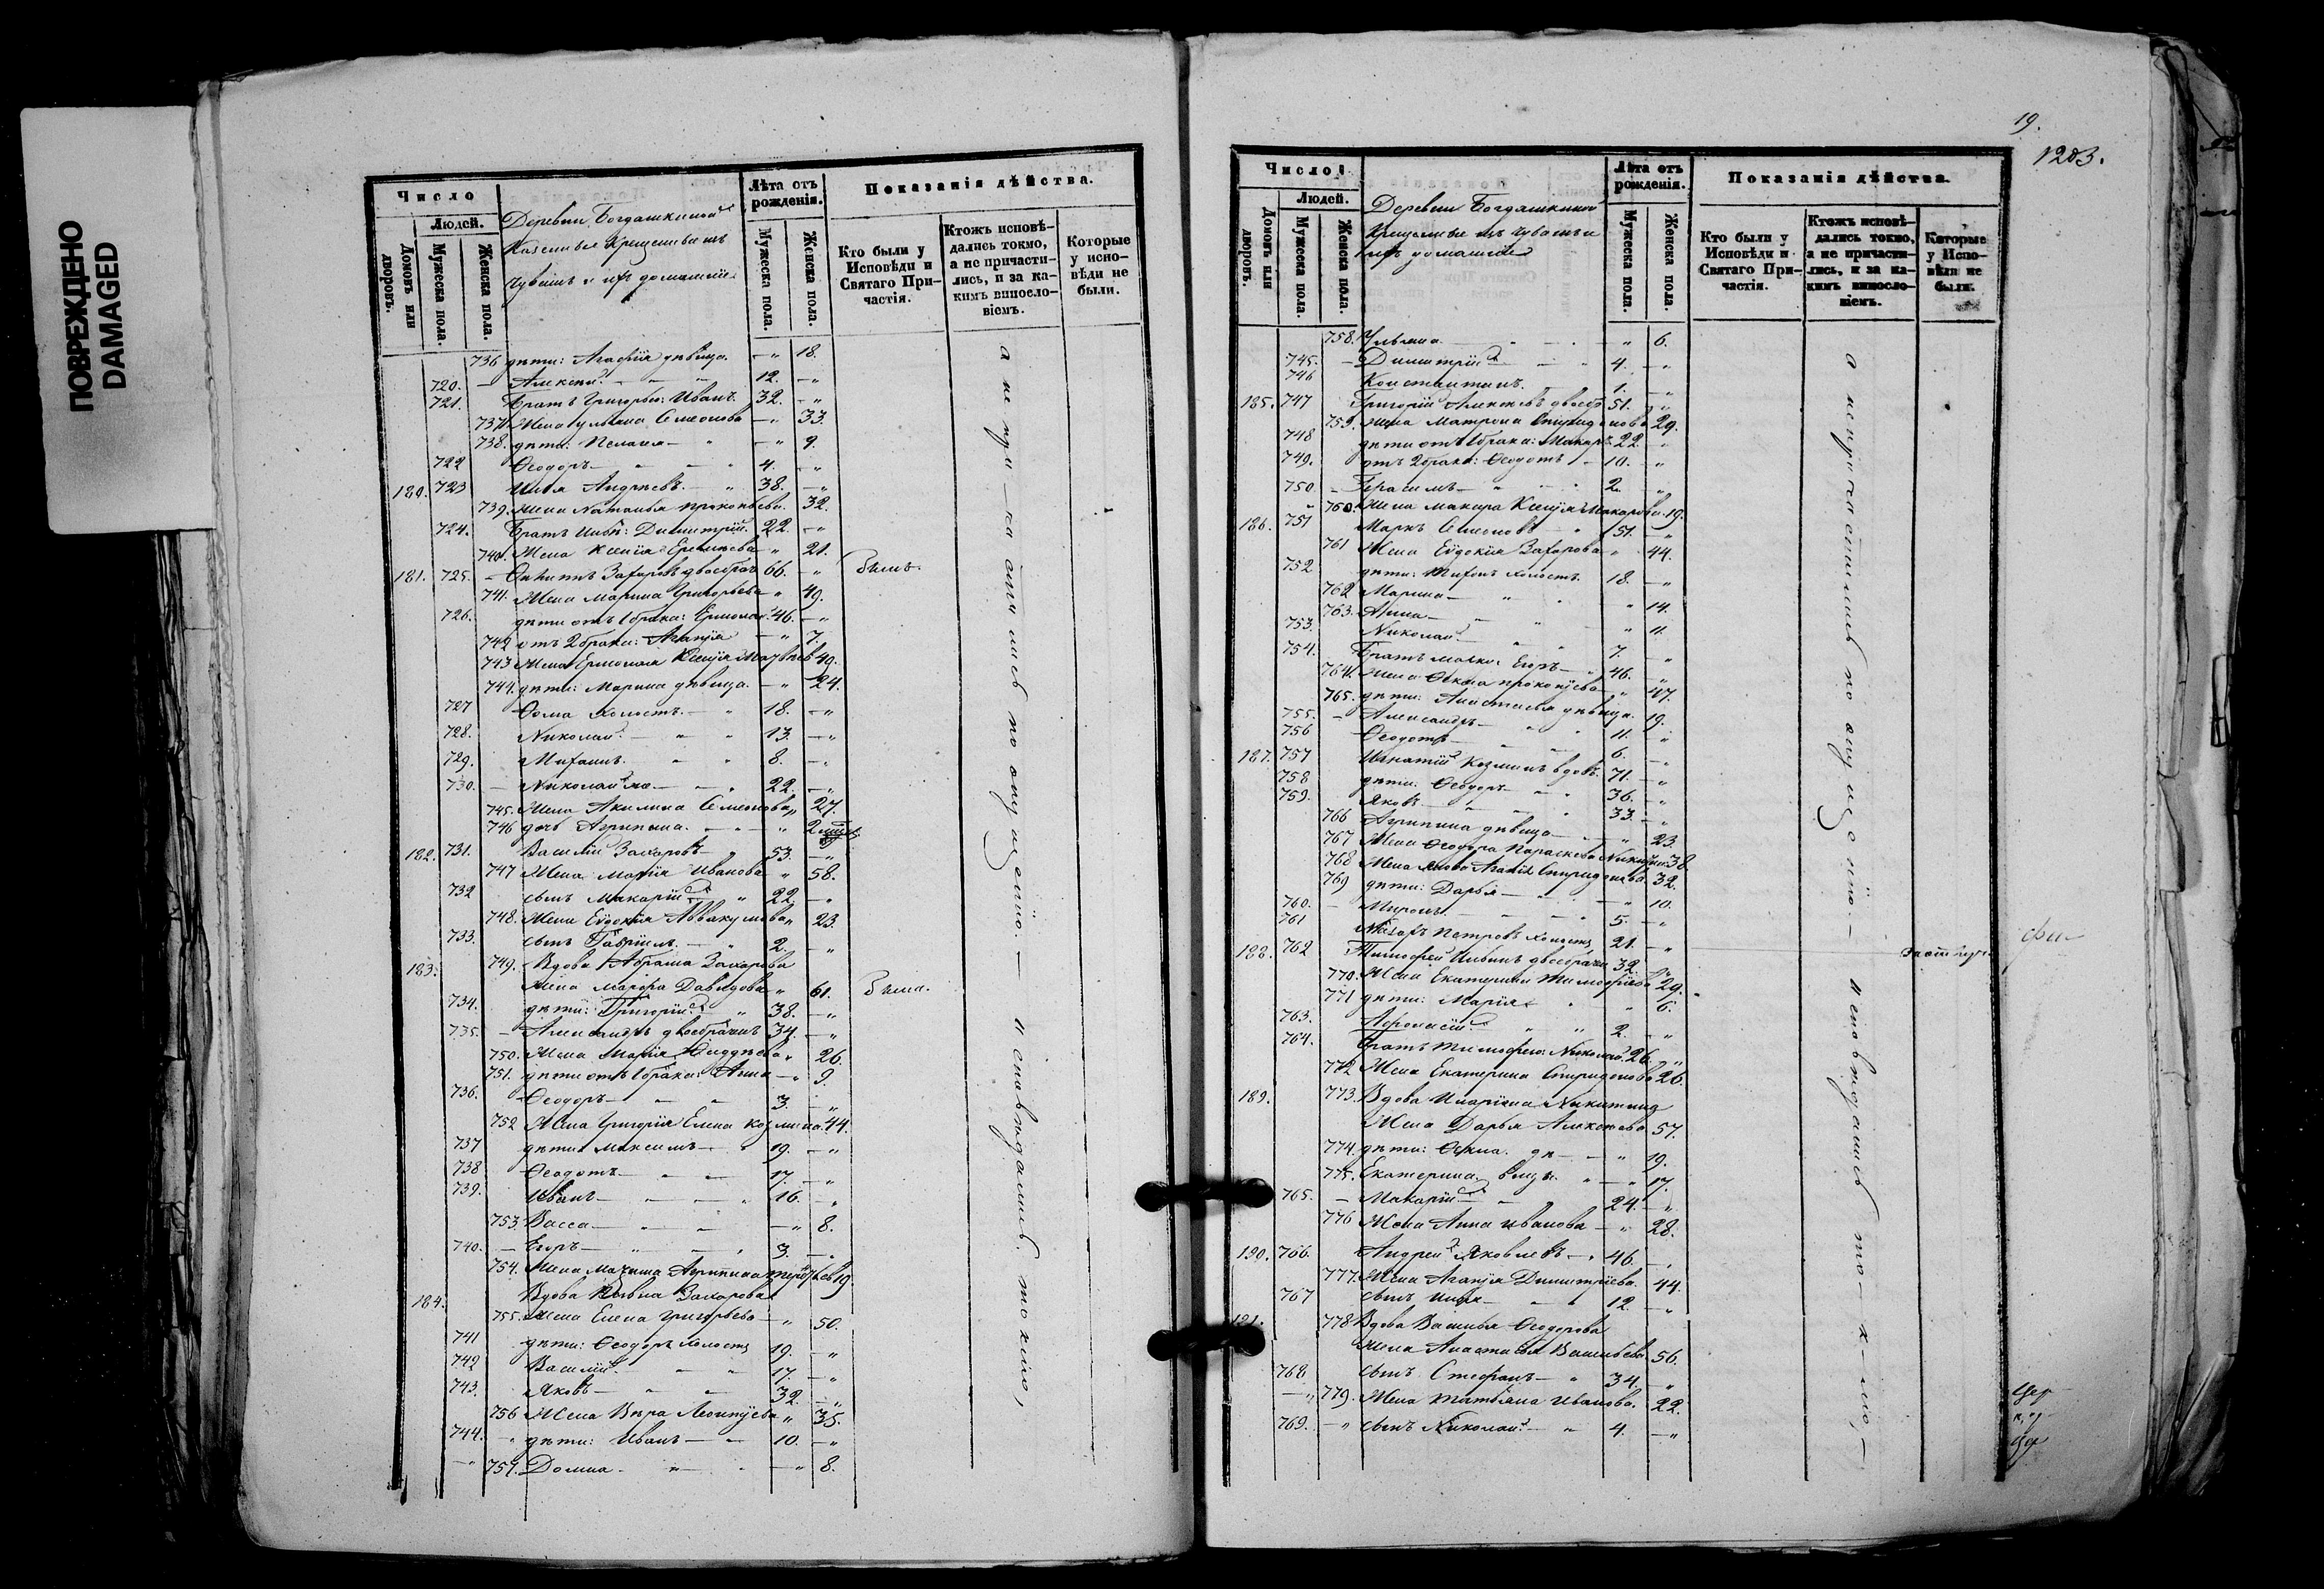 ПОВРЕЖДЕНО
DAMAGED
Число
Людей.
Домовъ или дворовъ.
Мужеска пола.
Женска пола.
Деревни Богдашкиной
Казенные Крещеные изъ
Чувашъ и ихъ домашніе
Лѣта отъ рожденія.
Мужеска пола.
Женска пола.
Показанія дѣйства.
Кто были у Исповѣди и Святаго Причастія.
Ктожъ исповѣдались токмо, а не причастились, и за какимъ винословіемъ.
Которые у исповѣди не были.
736 дѣти: Агафія дѣвица. — " 18.
720. — Алексѣй. — " 12. — "
721. Братъ Григорьевъ: Иванъ. 32. — "
737. Жена Ульяна Семенова — " 33.
738. дѣти: Пелагея — " — " 9.
722 Ѳеодоръ — " — " 4. — "
180. 723 Илья Андреевъ. — " 38. — "
739. Жена Наталья Прокопьева. 32.
724. Братъ Ильи: Димитрій. 22. — "
740. Жена Ксенія Еремѣева — " 21.
181. 725. — Захаровъ двоебрач. 66. — " Былъ.
741. Жена Марина Григорьева " 49.
726. дѣти отъ 1 брака: Ермолай. 46. — "
742 отъ 2 брака: Агапія — " 7.
743 Жена Ермолая Ксенія 49.
744. дѣти: Марина дѣвица. — " 24.
727 Ѳома холостъ. — " 18. — "
728. Николай. — " " 13. — "
729. Михаилъ. " " 8. — "
730. — Николай — " 22. — "
745. Жена Акилина Семенова " 27.
746 дочь Агрипина. — " — " 2
182. 731. Василій Захаровъ — " 53. — "
747 Жена Марія Иванова — " 58.
732 сынъ Макарій — " 22. — "
748. Жена Евдокія Аввакумова " 23.
733. сынъ Гавріилъ. — " 2. — "
183. 749. Вдова Абрама Захарова
Жена Марѳа Давидова — " 61. Была.
734. дѣти: Григорій — " 38. — "
735. — Александръ двоебрачн. 34. — "
750. Жена Марія " 26.
751. дѣти отъ 1 брака: Анна — " 9.
736. Ѳеодоръ — " — 3. — "
752 Жена Григорія Елена Козмина. 44.
737 дѣти Максимъ — " 19. — "
738 Ѳеодотъ — " — " 17. — "
739. Иванъ — " — " 16. — "
753. Васса — " — " — " 8.
740. — Егоръ — " — " 3. — "
754. Жена Максима Агрипина 19.
184. Вдова Захарова
755. Жена Елена Григорьева — " 50.
741 дѣти: Ѳеодоръ холостъ 19. — "
742 Василій. " " 17. — "
743. Яковъ — " — " 32. — "
756 Жена Вѣра Леонтіева " 35.
744. — " дѣти: Иванъ — " 10. — "
— " 757. Домна. " — " — " 8.
а не причастились по опущенію. — исповѣдались токмо,
19.
1203.
Число
Людей.
Домовъ или дворовъ.
Мужеска пола.
Женска пола.
Деревни Богдашкиной
Крещеные изъ Чувашъ и
ихъ домашніе
Лѣта отъ рожденія.
Мужеска пола.
Женска пола.
Показанія дѣйства.
Кто были у Исповѣди и Святаго Причастія.
Ктожъ исповѣдались токмо, а не причастились, и за какимъ винословіемъ.
Которые у Исповѣди не были.
758. Ульяна — " — " 6.
745. — Димитрій — " 4. — "
746 Константинъ. — " 1. — "
185. 747 Григорій Алексѣевъ двоебр. 51. — "
759. Жена Матрона Спиридонова 29.
748 дѣти отъ 1 брака: Макаръ. 22. "
749. отъ 2 брака: Ѳеодотъ — 10. — "
750. — Герасимъ — " 2. — "
760. Жена Макара Ксенія Макарова. 19.
186. 751 Маркъ Семеновъ — " 51. — "
761 Жена Евдокія Захарова " 44.
752 дѣти: Тихонъ холостъ. 18. — "
762 Марина — " " 14.
763. Анна — " " 11.
753. Николай — " 7. — "
754. Братъ Марка: Егоръ — " 46. — "
764. Жена Ѳекла Прокопіева — " 47.
765. дѣти: Анастасья дѣвица. 19.
755. — Александръ — " 11. — "
756 Ѳеодотъ — " 6. — "
187. 757 Игнатій Козминъ вдовъ. 71. — "
758 дѣти: Ѳеодоръ — " 36. — "
759. Яковъ — " 33. — "
766 Агрипина дѣвица — " 23.
767 Жена Ѳеодора Параскева 38.
768 Жена Якова Агапія Спиридонова. 32.
769 дѣти: Дарья — " — " 10.
760. — Миронъ. — " 5. — "
761 Петровъ холостъ 21. — "
188. 762 Тимофей Ильинъ двоебрачн. 32. "
770. Жена Екатерина Тимофеева 29.
771 дѣти: Марія " 6.
763. Аѳонасій " " 2. — "
764. Братъ Тимофея: Николай. 26. "
772 Жена Екатерина Спиридонова 26.
189. 773. Вдова Никитина
Жена Дарья Алексѣева. 57.
774. дѣти: Ѳекла. дѣ — " 19.
775. Екатерина вицы. " — " 17.
765. — Макарій — " 24. — "
776 Жена Анна Иванова — " 28.
190. 766. Андрей Яковлевъ — " 46. — "
777. Жена Агапія Димитріева. 44.
767 сынъ Илья — " 12. — "
191. 778 Вдова Василья Ѳеодорова
Жена Анастасья Васильева. 56.
768 сынъ Стефанъ — " 34. — "
— " 779. Жена Татьяна Иванова. 22.
769. — " сынъ Николай. — " 4. — "
а не причастились по опущенію. — исповѣдались токмо, —